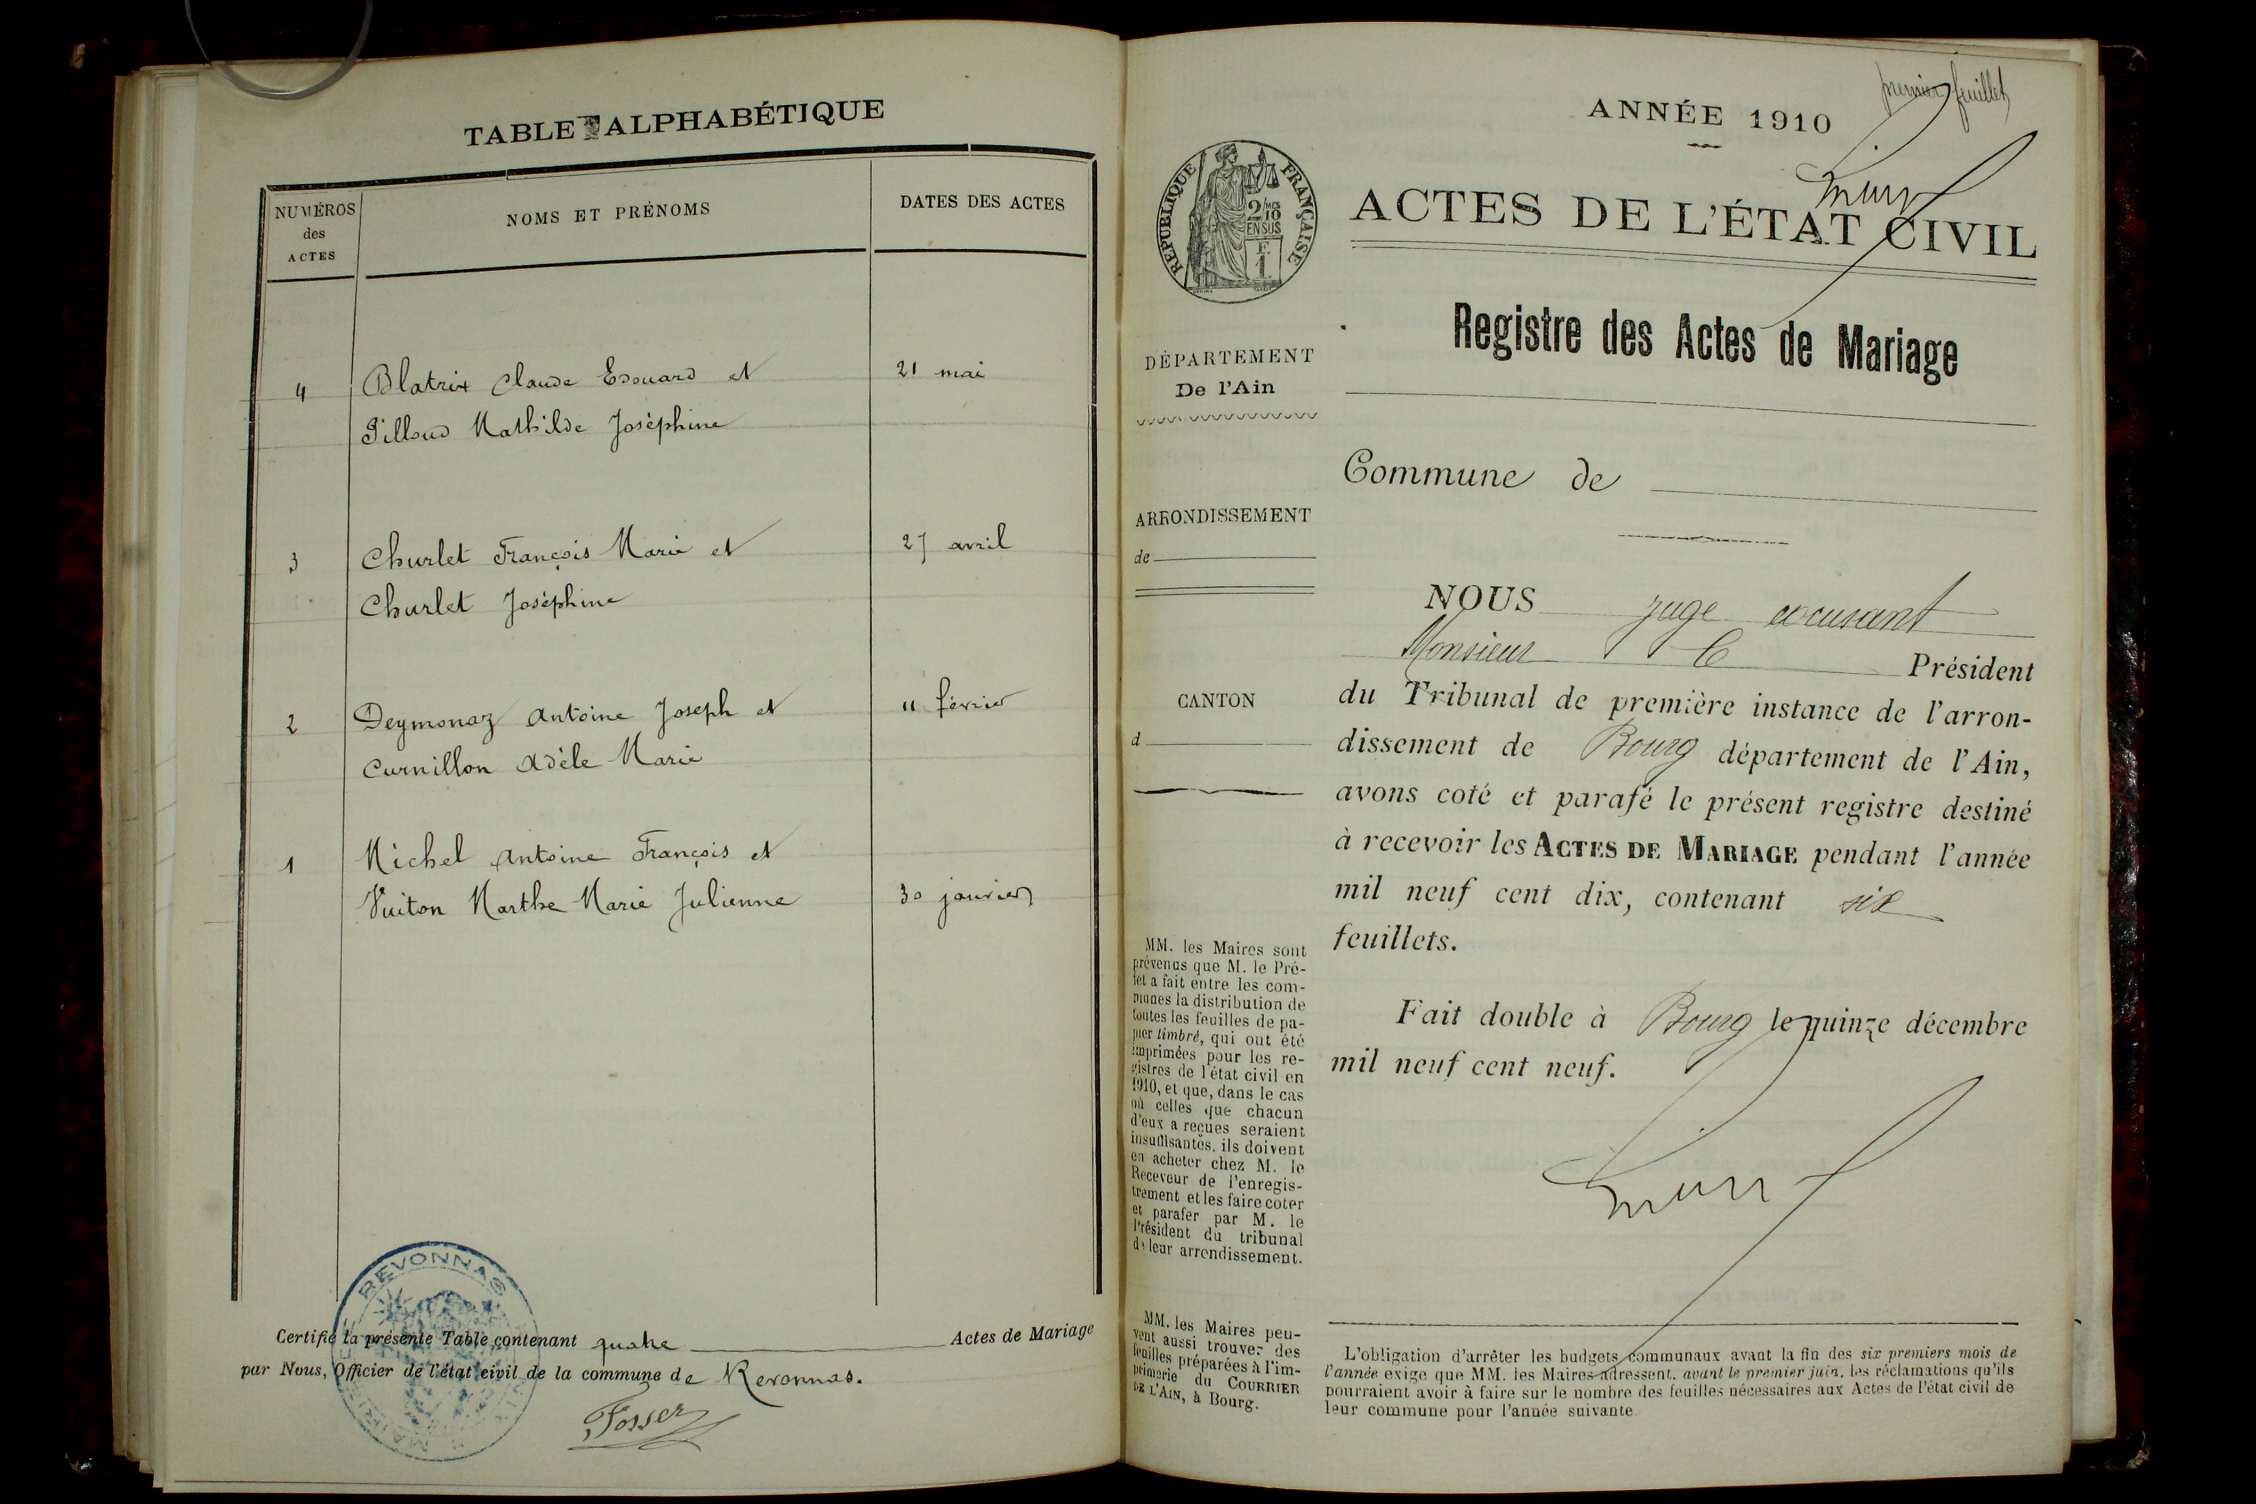 TABLE ALPHABÉTIQUE
NUMÉROS
des
ACTES
NOMS ET PRÉNOMS
DATES DES ACTES
4 Blatrix Claude Edouard et 21 mai
Pilloud Mathilde Joséphine
3 Churlet François Marie et 27 avril
Churlet Joséphine
2 Deymonaz Antoine Joseph et 11 février
Curnillon Adèle Marie
1 Michel Antoine François et
Vuiton Marthe Marie Julienne 30 janvier
REVONNAS
Certifié la présente Table contenant quatre Actes de Mariage
par Nous, Officier de l'état civil de la commune de Revonnas.
premier feuillet
ANNÉE 1910
RÉPUBLIQUE FRANÇAISE
2/10 MES
EN SUS
F
1
ACTES DE L'ÉTAT CIVIL
Registre des Actes de Mariage
DÉPARTEMENT
De l'Ain
Commune de
ARRONDISSEMENT
de
CANTON
d
NOUS juge
Monsieur Président
du Tribunal de première instance de l'arron-
dissement de Bourg département de l'Ain,
avons coté et parafé le présent registre destiné
à recevoir les ACTES DE MARIAGE pendant l'année
mil neuf cent dix, contenant six
feuillets.
Fait double à Bourg le quinze décembre
mil neuf cent neuf.
MM. les Maires sont
prévenus que M. le Pré-
fet a fait entre les com-
munes la distribution de
toutes les feuilles de pa-
pier timbré, qui ont été
imprimées pour les re-
gistres de l'état civil en
1910, et que, dans le cas
où celles que chacun
d'eux a reçues seraient
insuffisantes, ils doivent
en acheter chez M. le
Receveur de l'enregis-
trement et les faire coter
et parafer par M. le
Président du tribunal
de leur arrondissement.
MM. les Maires peu-
vent aussi trouver des
feuilles préparées à l'im-
primerie du COURRIER
DE L'AIN, à Bourg.
L'obligation d'arrêter les budgets communaux avant la fin des six premiers mois de
l'année exige que MM. les Maires adressent, avant le premier juin, les réclamations qu'ils
pourraient avoir à faire sur le nombre des feuilles nécessaires aux Actes de l'état civil de
leur commune pour l'année suivante.